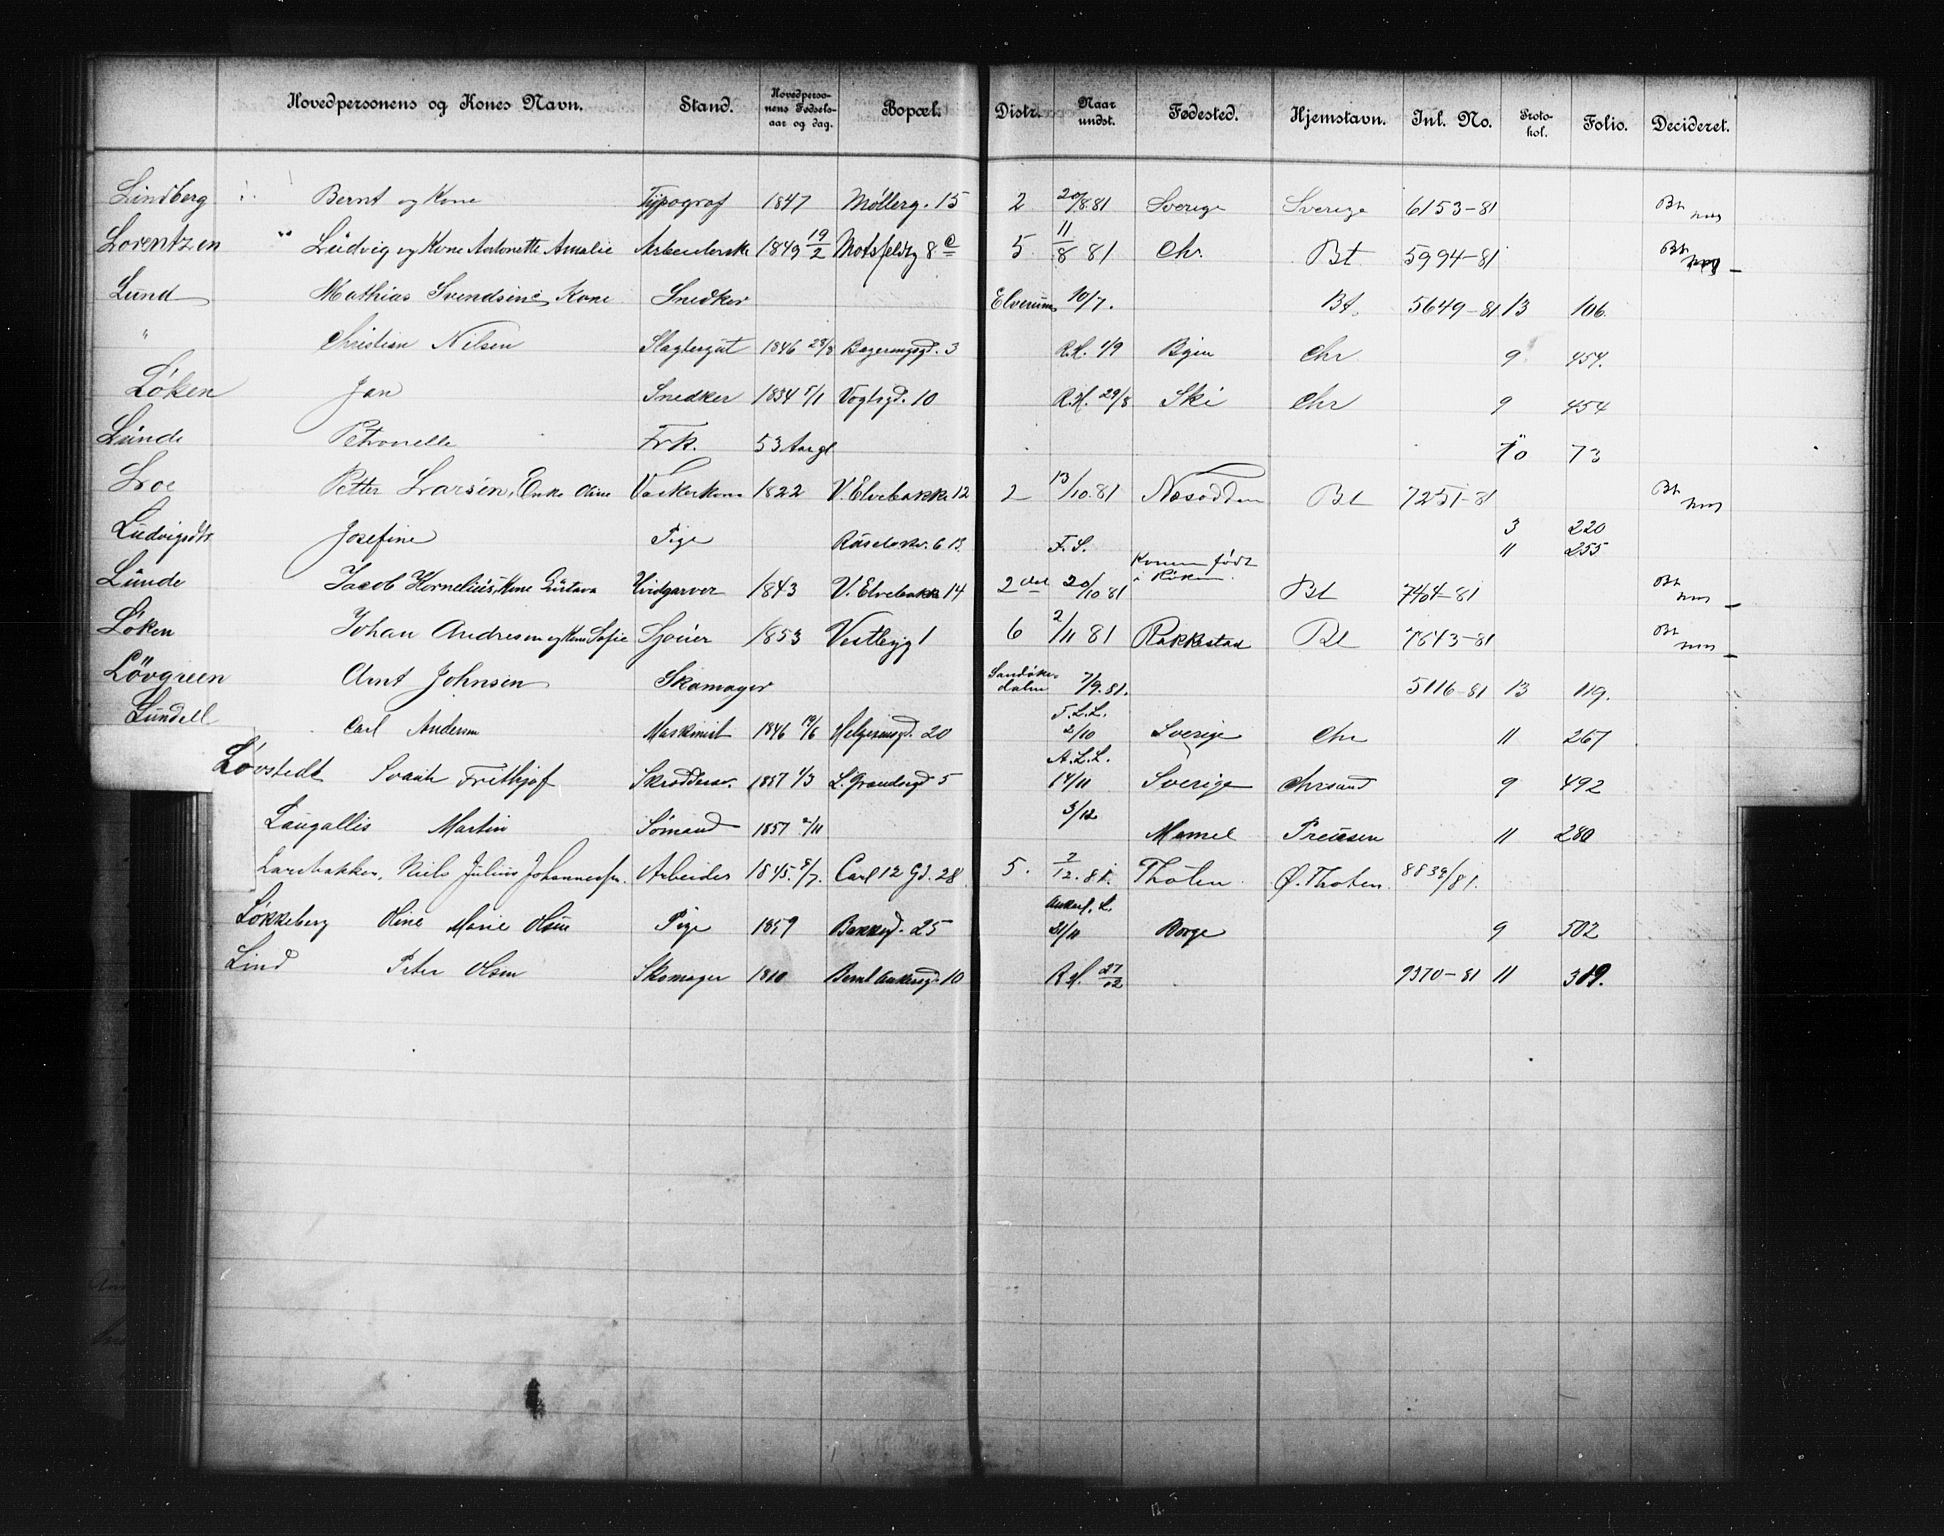 Hovedpersonens og Kones Navn. Stand. Hovedpersonens Fødselsaar og dag. Bopæl. Distr. Naar undst. Fødested. Hjemstavn. Inl. No. Protokol. Folio. Decideret.
Lindberg Bernt og Kone Typograf 1847 Møllerg. 15 2 20/8.81 Sverige Sverige 6153-81 Bt
Lorentzen Ludvig og Kone Antonette Amalie 1849 19/2 Motsfeldtg 8 c 5 11/8 81 Chr. Bt 5994-81 Bt
Lund Mathias Svendsen Kone Snedker Elverum 10/7. Bt. 5649-81 13 106.
" Christian Nilsen Slagtergut 1846 28/8 3 R.H. 1/9 Chr 9 454.
Løken Jan Snedker 1834 5/1 Vogtsgd. 10 R.H. 29/8 Ski Chr 9 454
Lunde Petronelle Frk. 53 Aar gl 10 73
Loe Petter Larsen, Enke Oline Vaskerkone 1822 V. Elvebakke 12 2 13/10.81 Næsodden Bt 7251-81 Bt
Ludvigsdtr Josefine Pige 6 B. F.S. 3 220
11 255
Konen født
Lunde Jacob Kornelius, Kone Gustava Hvidgarver 1843 V. Elvebakke 14 2 det 20/10 81 i Røken. Bt 7464-81 Bt
Løken Johan Andresen og Kone Sofie Sjouer 1853 Vestbyg 1 6 2/11 81 Rakkestad Bt 7643-81 Bt
Løvgreen Arnt Johnsen Skomager Sandøkerdalen 7/9.81. 5116-81 13 119.
Lundell Carl Andersen Maskinist 1846 19/6 Helgesensgd. 20 F.L.L. 2/10 Sverige Chr 11 267
Løvstedt Svante Frithjof Skrædder. 1857 1/3 L. Grændsegd 5 A.L.L. 14/11 Sverige Chrsand 9 492
Laugallis Martin Sømand 1857 2/11 3/12 Memel Preusen 11 280
Larsbakken, Niels Julius Johannessen. Arbeider 1845. 8/7. Carl 12 Gd. 28 5. 2/12.81. Thoten Ø. Thoten 8839/81.
Løkkeberg Oline Marie Olsen Pige 1859 Bakkegd. 25 Ankerl. L. 21/11 Borge 9 502
Lind Peter Olsen Skomager 1810 Bernt Ankersgd. 10 R.H. 27/12 9370-81 11 309.